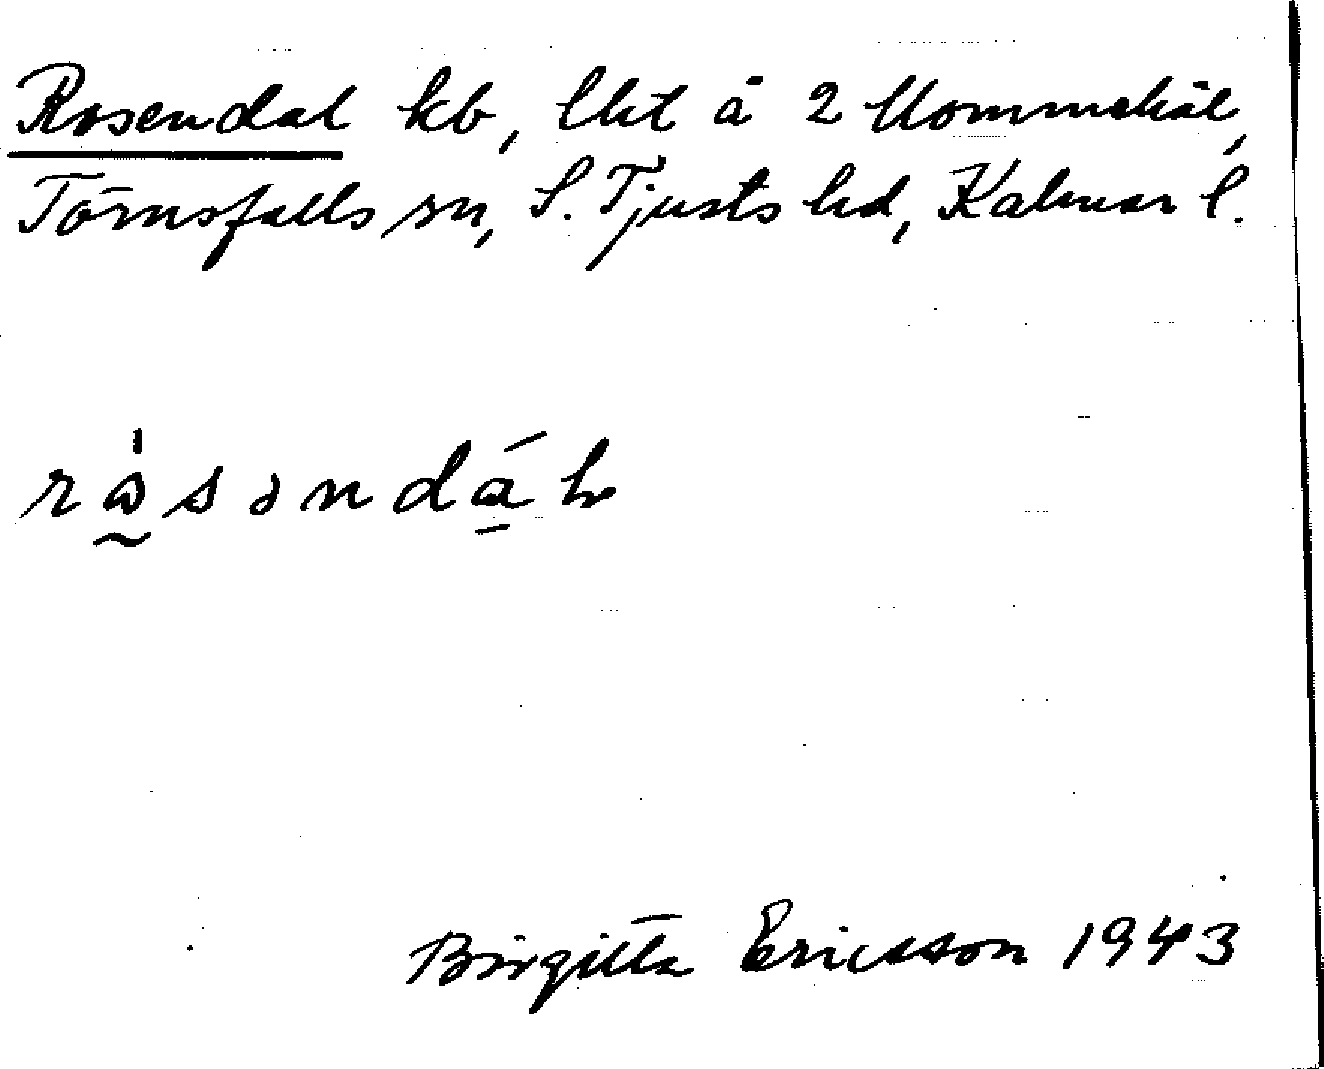 Rosendal kb, lht å 2 Mommehål,
Törnsfalls sn, S. Tjusts hd, Kalmar l.
rå̀səndáɫ
Birgitta Ericsson 1943